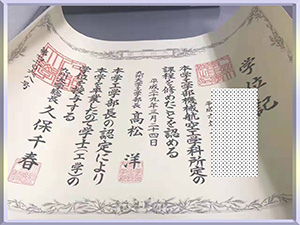 学位記
本学工学部機械航空工学科所定の
課程を修めたことを認める
平成二十九年三月二十四日
九州大学工学部長 高松 洋
本学工学部長の認定により
本学を卒業したので学士(工学)の
学位を授与する
九州大学総長 久保千春